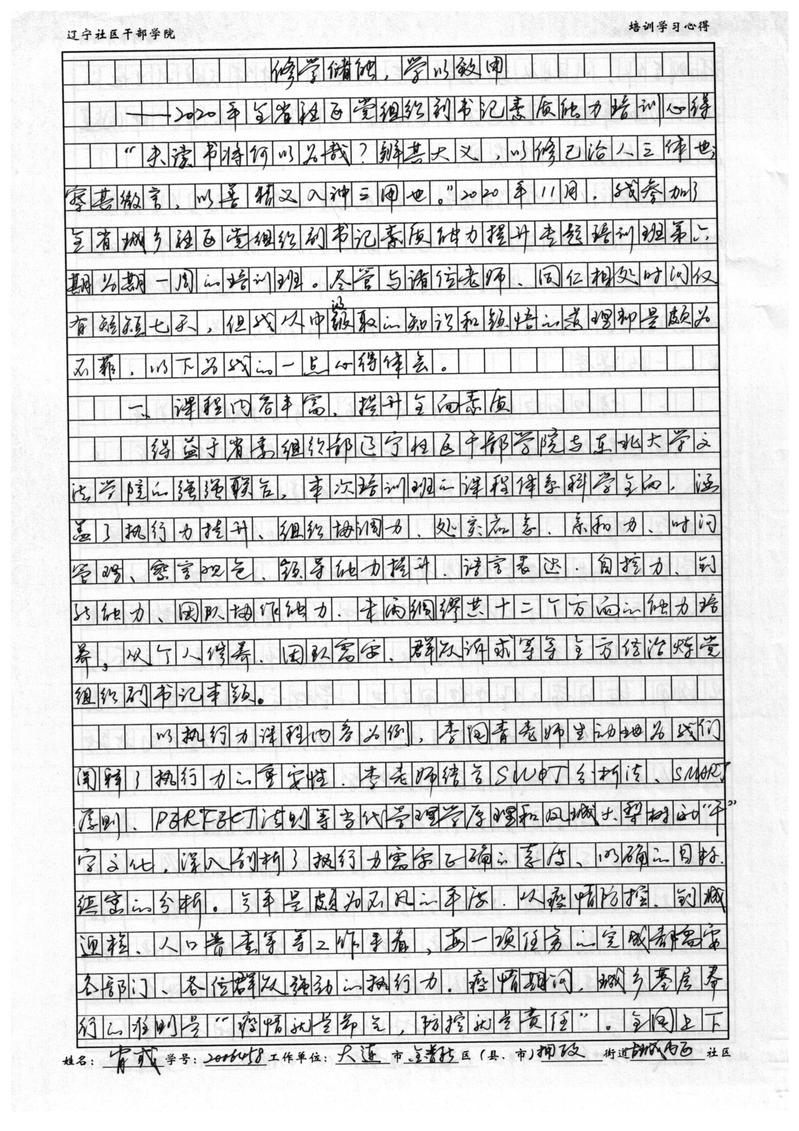 辽宁社区干部学院 培训学习心得
修学储能，学以致用
——2020年全省社区党组织副书记素质能力培训心得
“末读书将何以为哉？辨其大义，以修己治人之体也，
察其微言，以善精义入神之用也。”2020年11月，我参加了
全省城乡社区党组织副书记素质能力提升专题培训班第六
期为期一周的培训班。尽管与诸位老师、同仁相处时间仅
有短短七天，但我从中汲取的知识和领悟的道理却是颇为
不菲，以下为我的一点心得体会。
一、课程内容丰富，提升全面素质
得益于省委组织部辽宁社区干部学院与东北大学文
法学院的强强联合，本次培训班的课程体系科学全面，涵
盖了执行力提升、组织协调力、处突应急、亲和力、时间
管理、察言观色、领导能力提升、语言表达、自控力、创
新能力、团队协作能力、未雨绸缪共十二个方面的能力培
养，从个人修养、团队需求、群众诉求等等全方位治炼党
组织副书记本领。
以执行力课程内容为例，李国青老师生动地为我们
阐释了执行力的重要性，李老师结合SWOT分析法、SMART
原则、PERFECT法则等当代管理学原理和凤城大梨树的“干”
字文化，深入剖析了执行力需要正确的表法、明确的目标、
缜密的分析。今年是颇为不凡的年涛，从疫情防控、创城
迎检、人口普查等等工作来看，每一项任务的完成都需要
各部门、各位群众强劲的执行力。疫情期间，城乡基层奉
行的准则是“疫情就是命令，防控就是责任”。全国上下
姓名： 学号：2006458 工作单位：大连市金普新区（县、市）拥政街道 社区